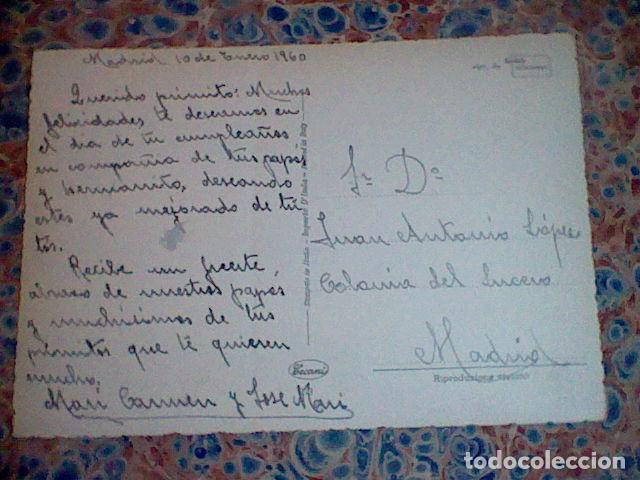 Madrid 10 de Enero 1960
Querido primito: Muchas
felicidades te deseamos en
el dia de tu cumpleaños
en compañia de tus papás
y hermanito, deseando
estes ya mejorado de tu
tos.
Recibe un fuerte
abrazo de nuestros papas
y muchisimos de tus
primitos que te quieren
mucho,
Mari Carmen y Jose Mari
Cecami
Sr. Dº
Juan Antonio López
Colonia del Lucero
Madrid
Riproduzione vietata
todocoleccion.net